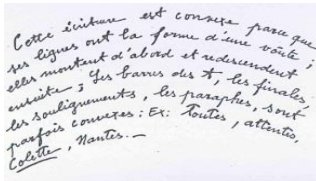 Cette écriture est convexe parce que
ses lignes ont la forme d'une voûte ;
elles montent d'abord et redescendent
ensuite ; Les barres des t, les finales,
les soulignements, les paraphes, sont
parfois convexes : Ex : Toutes, attentes,
Colette, Nantes. —